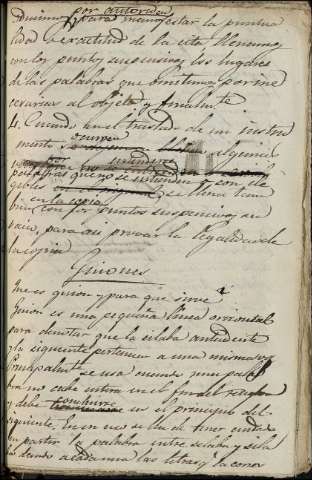 por autoridad
para manifestar la puntua
lidad y exactitud de la cita llenamos
con los puntos suspensivos los lugares
de las palabras que omitimos por inne
cesarias al objeto, y finalmente
4. Cuando en el traslado de un instru
mento ocurren algunas
palabras que no se entienden
en la copia se llena tam
bien con los puntos suspensivos su
vacio, para asi provar la legalidad de
la copia
Guiones
Que es guion y para que sirve?
Guion es una pequeña linea orizontal
para denotar que la silaba antecedente
y la siguiente pertenecen a una misma voz
Principalmente se usa cuando una pala
bra no cabe entera en el fin del renglon
y debe concluirse en el principio del
siguiente. En su uso se ha de tener cuidado
en partir la palabra entre silaba y silaba
dando a cada una las letras q.e la